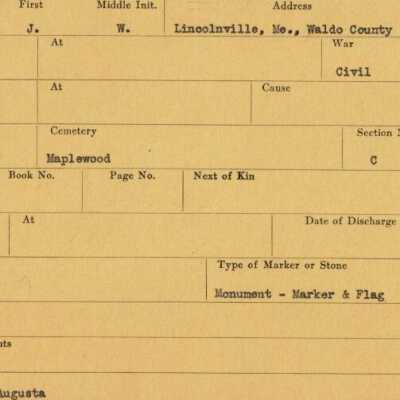 First Middle Init. Address
J. W. Lincolnville, Me., Waldo County
At War
Civil
At Cause
Cemetery Section
Maplewood C
Book No. Page No. Next of Kin
At Date of Discharge
Type of Marker or Stone
Monument - Marker & Flag
Augusta